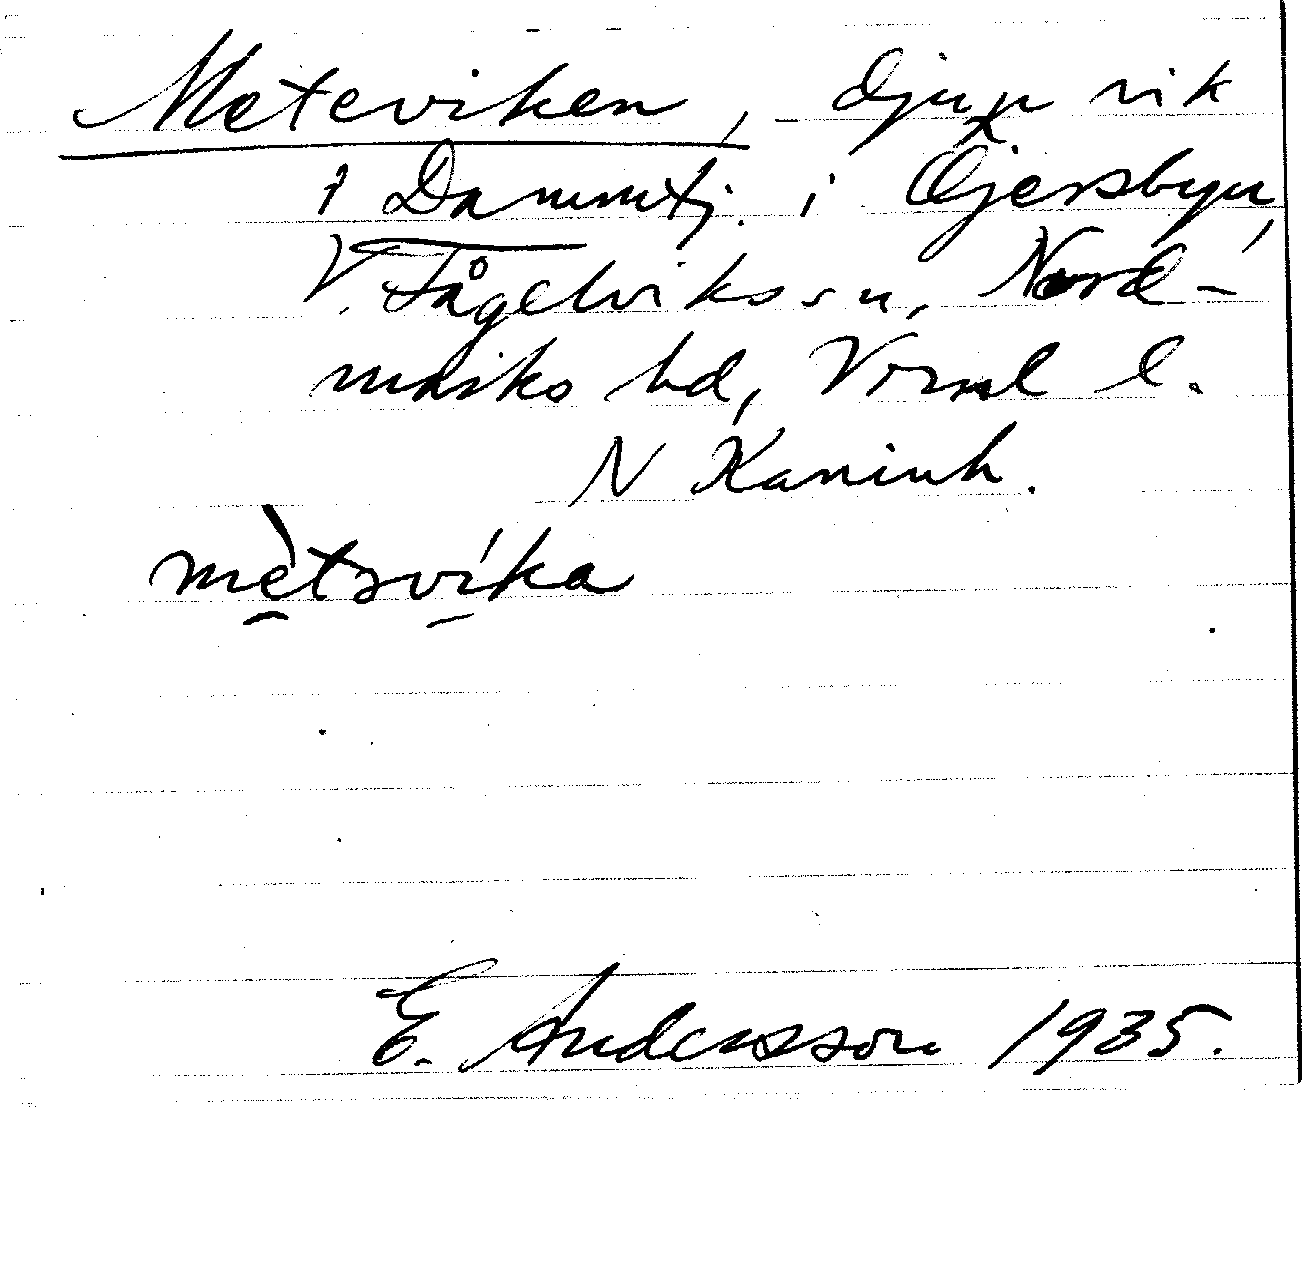 Meteviken, djup vik
i Dammtj. i Öjersbyn,
V. Fågelviks sn, Nord-
marks hd, Värml l.
N Kaninh.
mètəvíka
E. Andersson 1935.